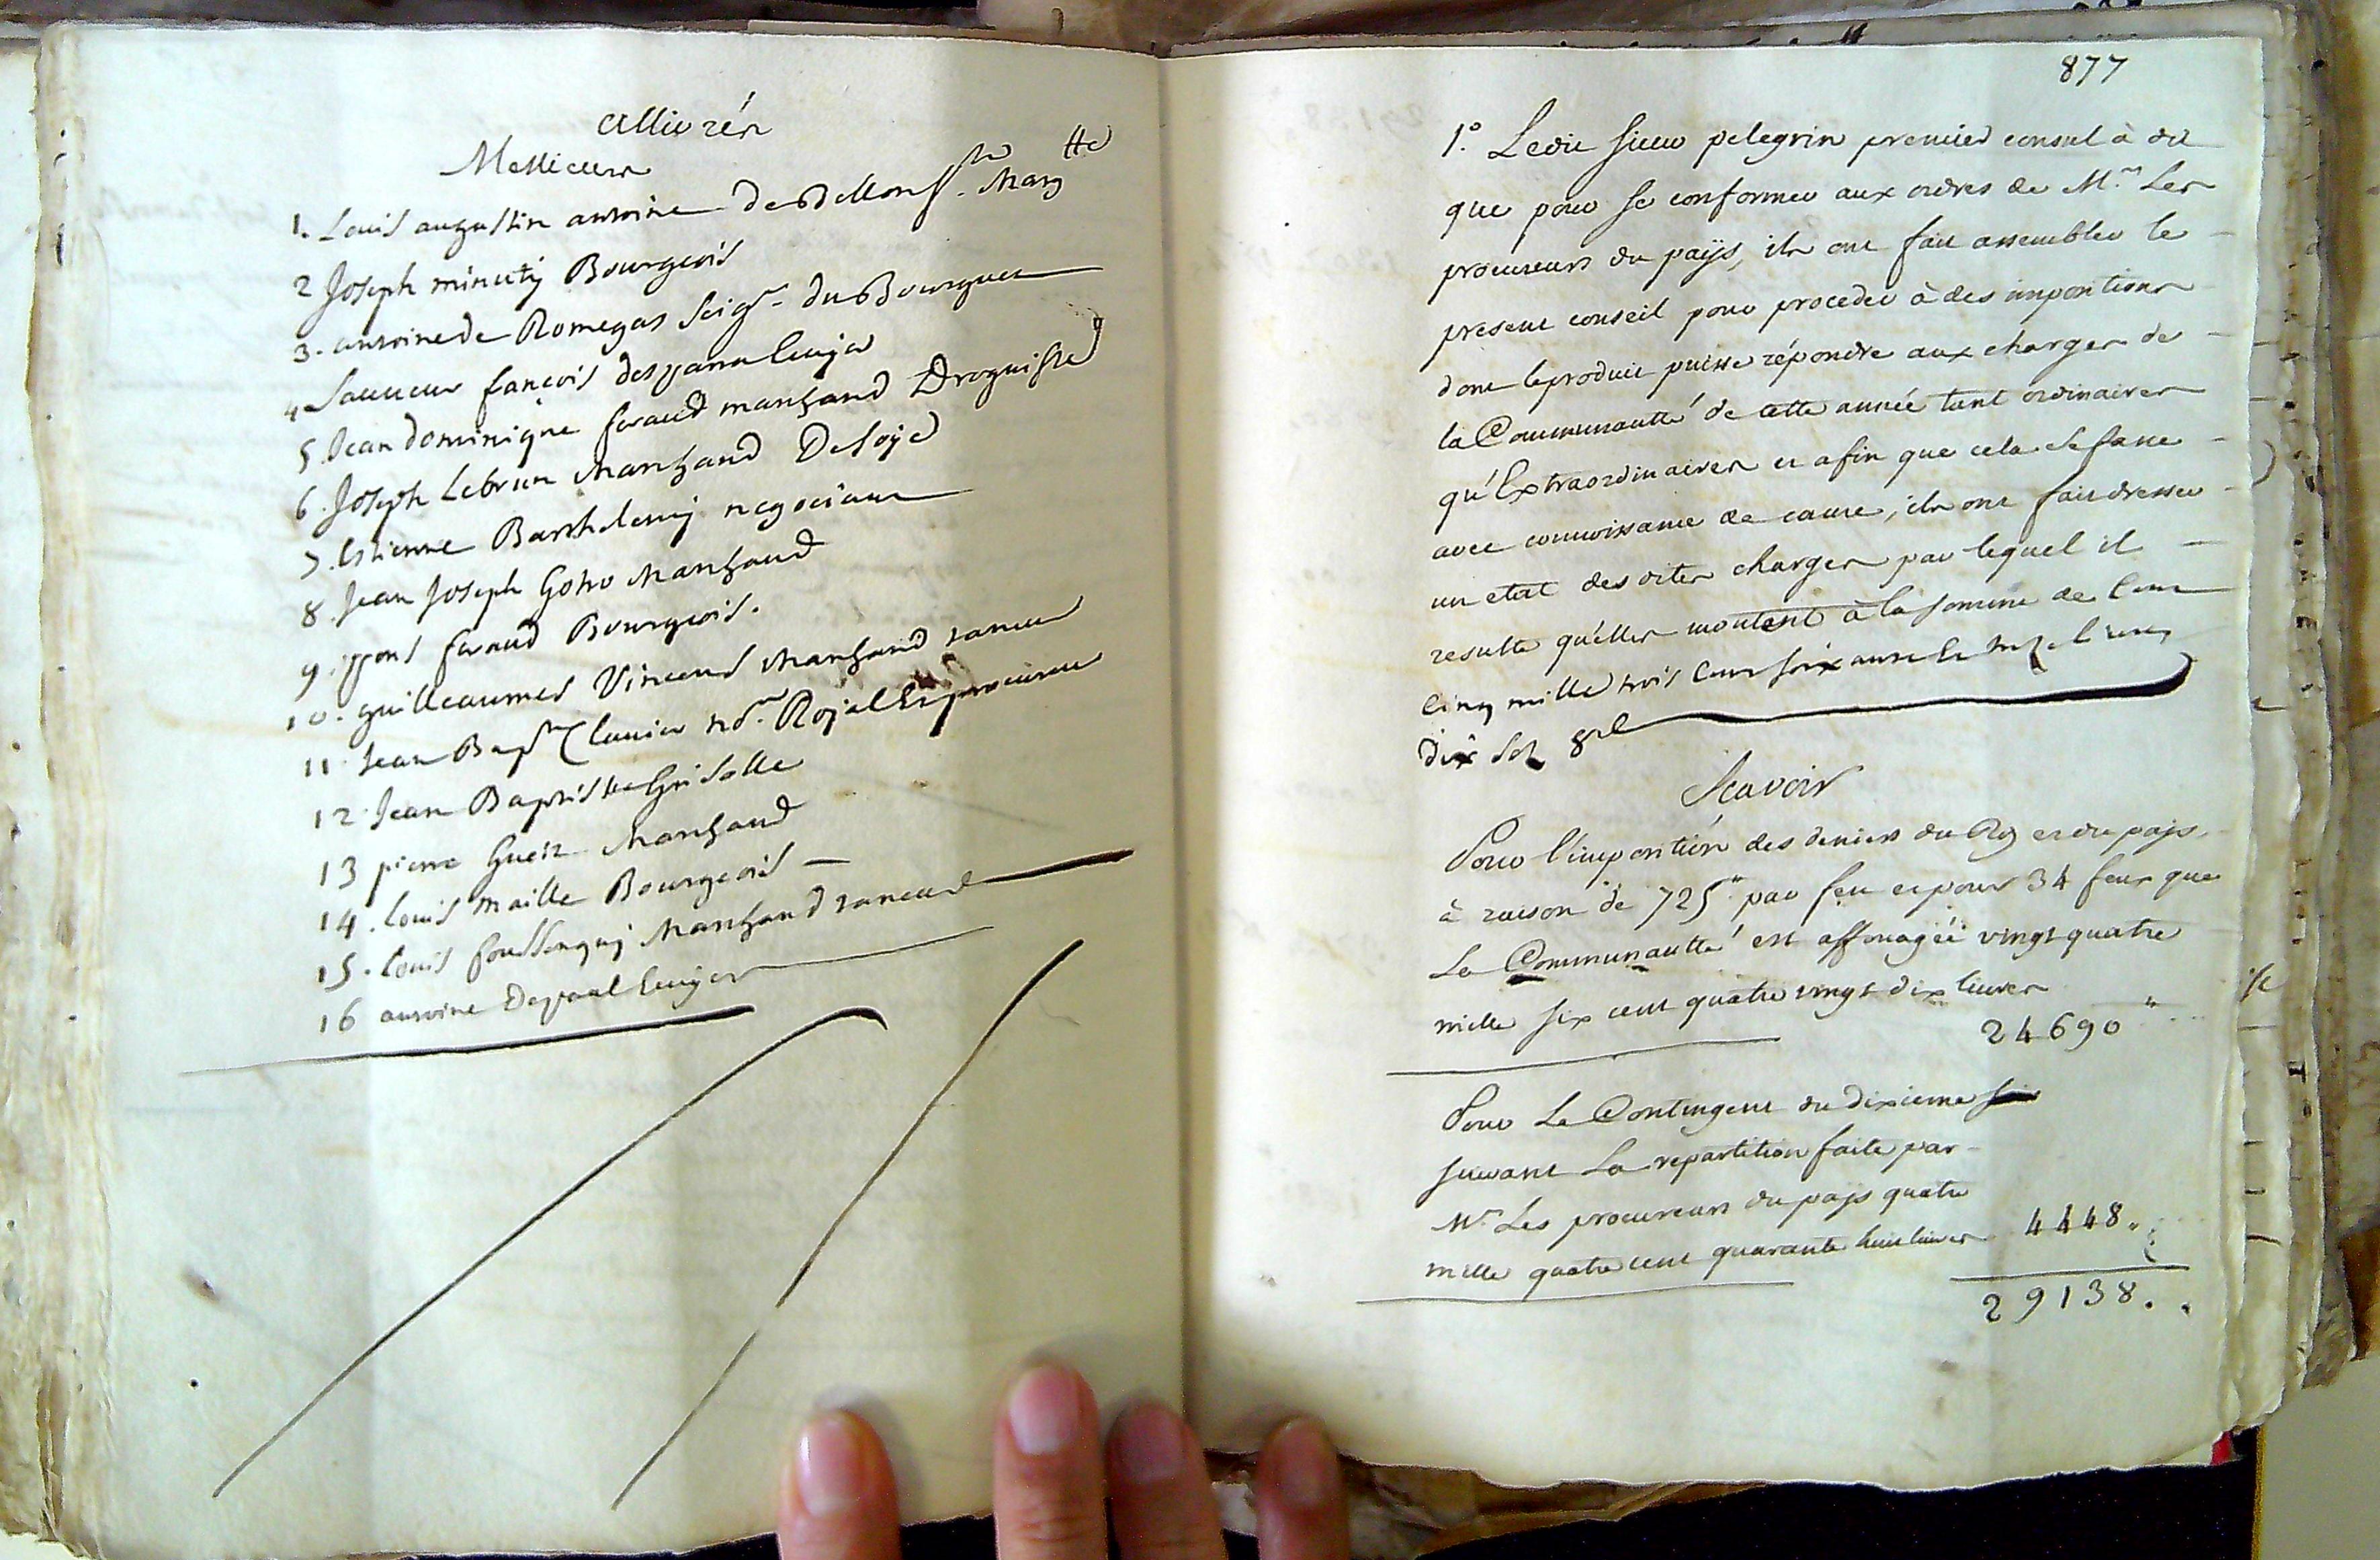 allivrés
Messieurs
1. Louis augustin antoine de
2 Joseph minuty Bourgeois
3. antoine de Romegas Seigr. du Bourguet
4 Sauveur françois
5 Jean dominique feraud marchand Droguiste
6. Joseph Lebrun Marchand De soye
7. Estienne Barthelemy negociant
8. Jean Joseph Marchand
9. pons feraud Bourgeois.
10. guilleaumes Vincens Marchand taneur
11 Jean Bapte Clavier Royal Et procureur
12. Jean Baptiste Grisolle
13 pierre Gueit Marchand
14. Louis maille Bourgeois
15. Louis foussenquy Marchand taneur
16 antoine
877
1.° Ledit sieur pelegrin premier consul à dit
que pour se conformer aux ordres de M.rs Les
procureurs du païs, ils ont fait assembler le
present conseil pour proceder à des impositions
dont le produit puisse répondre aux charges de
la Communautté de cette année tant ordinaires
qu'Extraordinaires et afin que cela se fasse
avec connoissance de cause, ils ont fait dresser
un etat des dites charges par lequel il
resulte qu'elles montent à la somme de Cent
Cinq mille trois Cent soixante livres
dix sols
Scavoir
Pour l'imposition des deniers du Roy et du pays
à raison de 725tt par feu et pour 34 feux que
La Communautté est affouagée vingt quatre
mille six cent quatre vingt dix livres
24690 "
Pour Le Contingent du dixieme
suivant La repartition faite par
Mrs Les procureurs du pays quatre
mille quatre cent quarante huit livres 4448.
29138.